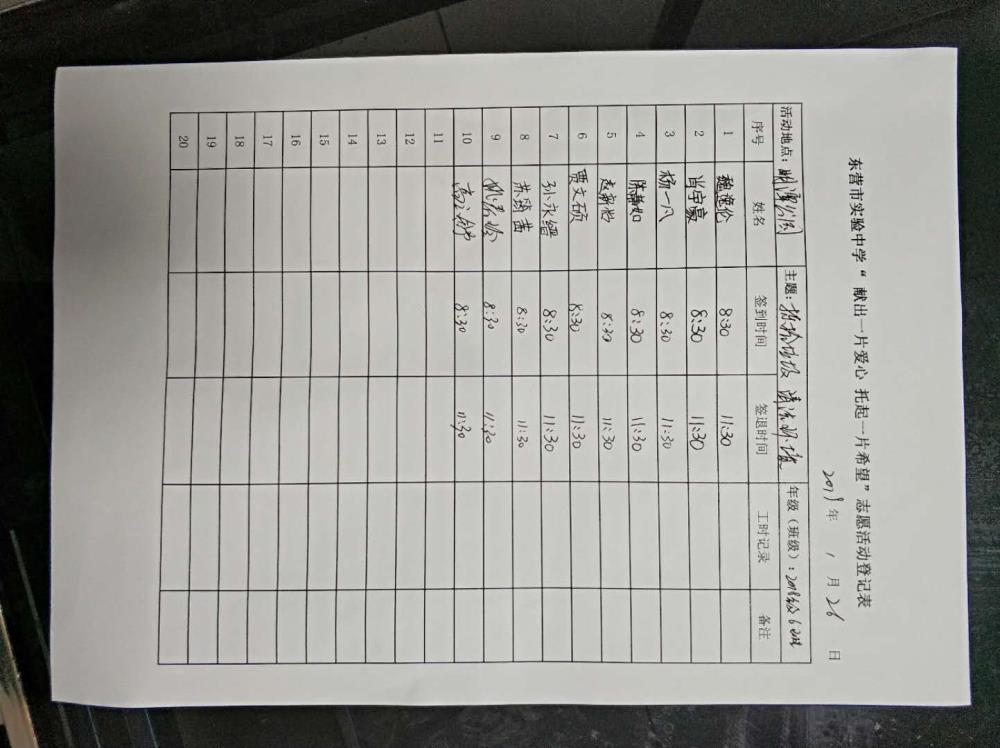 东营市实验中学“ 献出一片爱心 托起一片希望”志愿活动登记表
2019年 1 月 26 日
活动地点：明潭公园 主题：捡拾垃圾 清洁环境 年级（班级）：2018级6班
序号 姓名 签到时间 签退时间 工时记录 备注
1 魏逸伦 8:30 11:30
2 肖宇豪 8:30 11:30
3 杨一凡 8:30 11:30
4 陈静如 8:30 11:30
5 8:30 11:30
6 贾文硕 8:30 11:30
7 孙永缙 8:30 11:30
8 苏筱茜 8:30 11:30
9 8:30 11:30
10 8:30 11:30
11
12
13
14
15
16
17
18
19
20